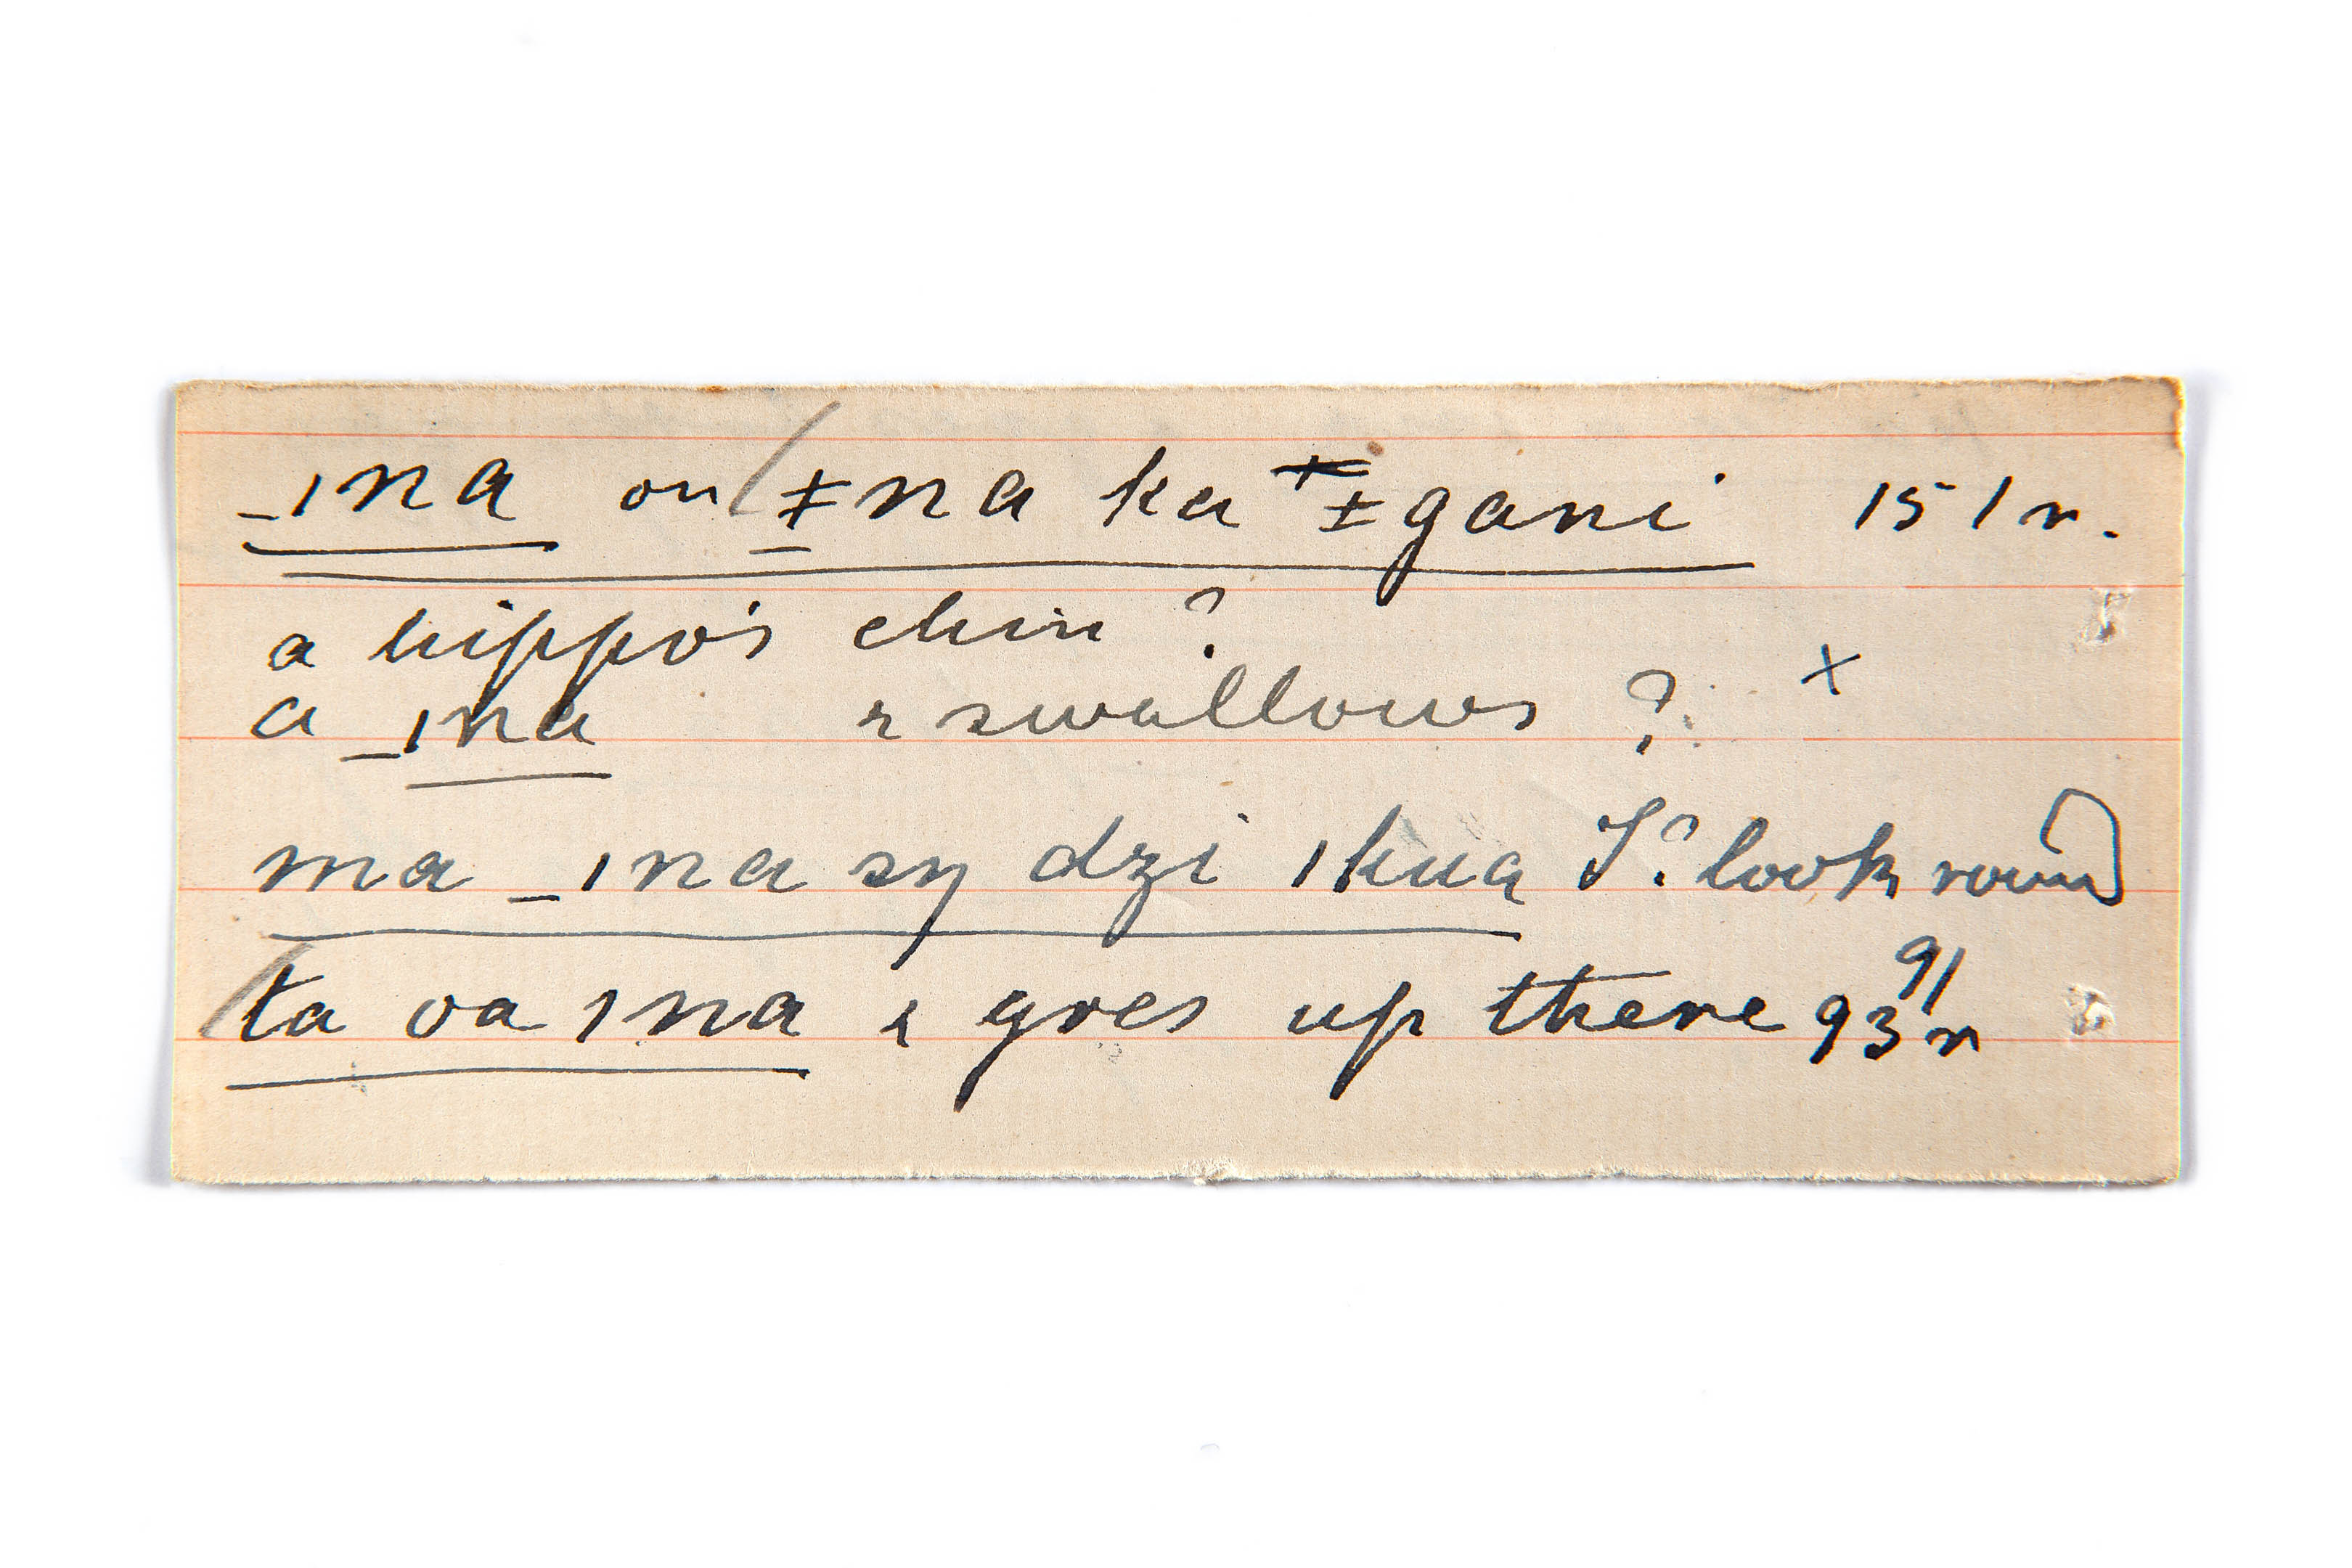 _ǀna on ǂna ka ǂgani 151 r.
a hippo's chin ?
a _ǀna & swallows ? x
ma _ǀna sŋ dzi ǀkua I ? look round
ta oa ǀna & goes up there 93 91 r